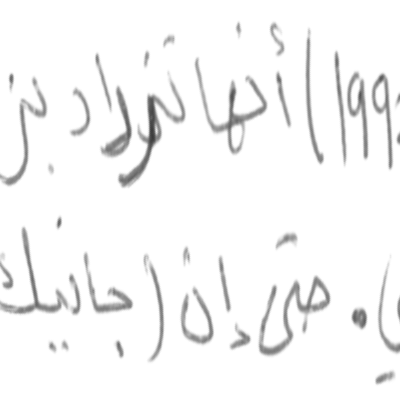 199) أنها تزداد بز
). حتى إن (جانيك